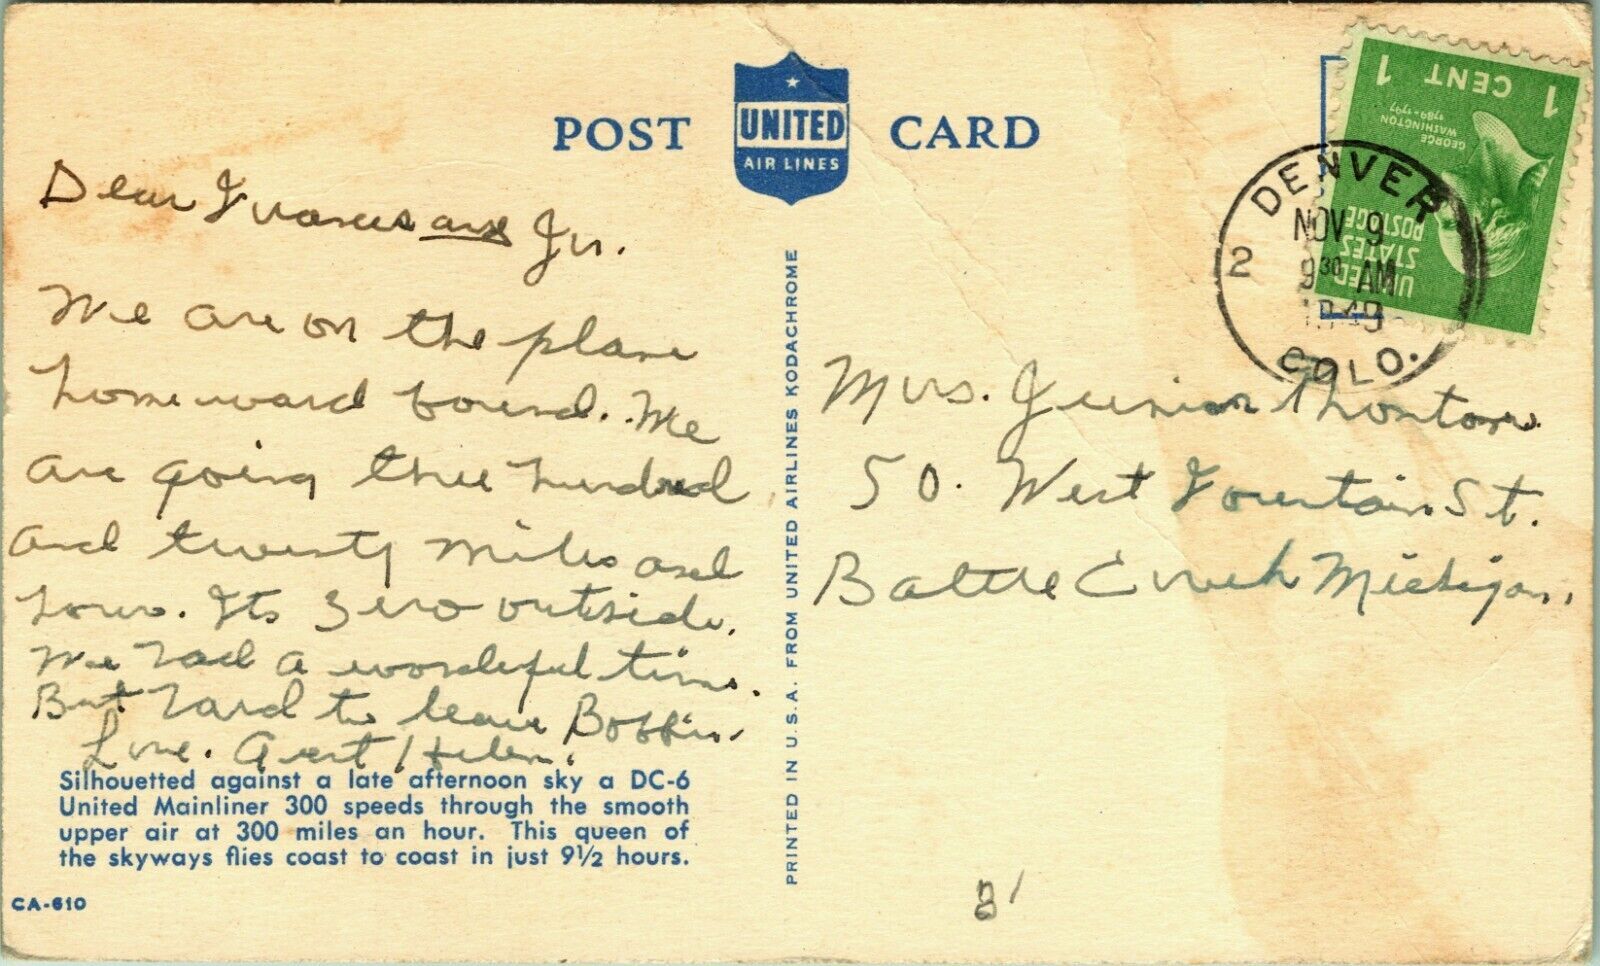 POST CARD
UNITED
AIR LINES
1 CENT 1
GEORGE
WASHINGTON
1789-1797
UNITED
STATES
POSTAGE
DENVER
2
NOV 9
9 30 AM
1949
COLO.
Dear Frances and Jr.
We are on the plane
homeward bound. We
are going three hundred
and twenty miles and
hour. Its zero outside.
We had a wonderful time.
But hard to leave
Love. Aunt Helen.
Mrs. Junior Thornton
50. West Fountain St.
Battle Creek Michigan.
Silhouetted against a late afternoon sky a DC-6
United Mainliner 300 speeds through the smooth
upper air at 300 miles an hour. This queen of
the skyways flies coast to coast in just 9½ hours.
CA-610
PRINTED IN U.S.A. FROM UNITED AIRLINES KODACHROME